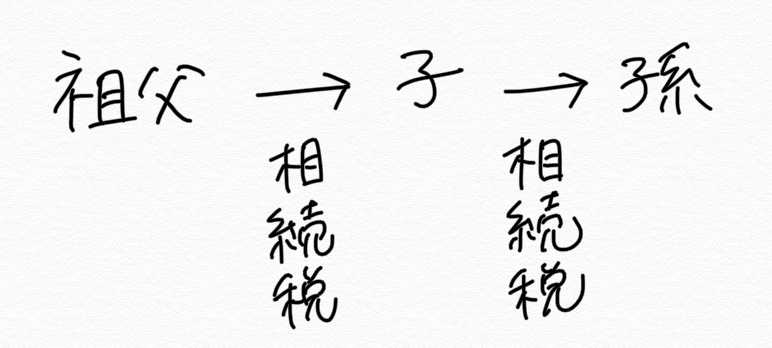 祖父 → 子 → 子孫
相続税
相続税